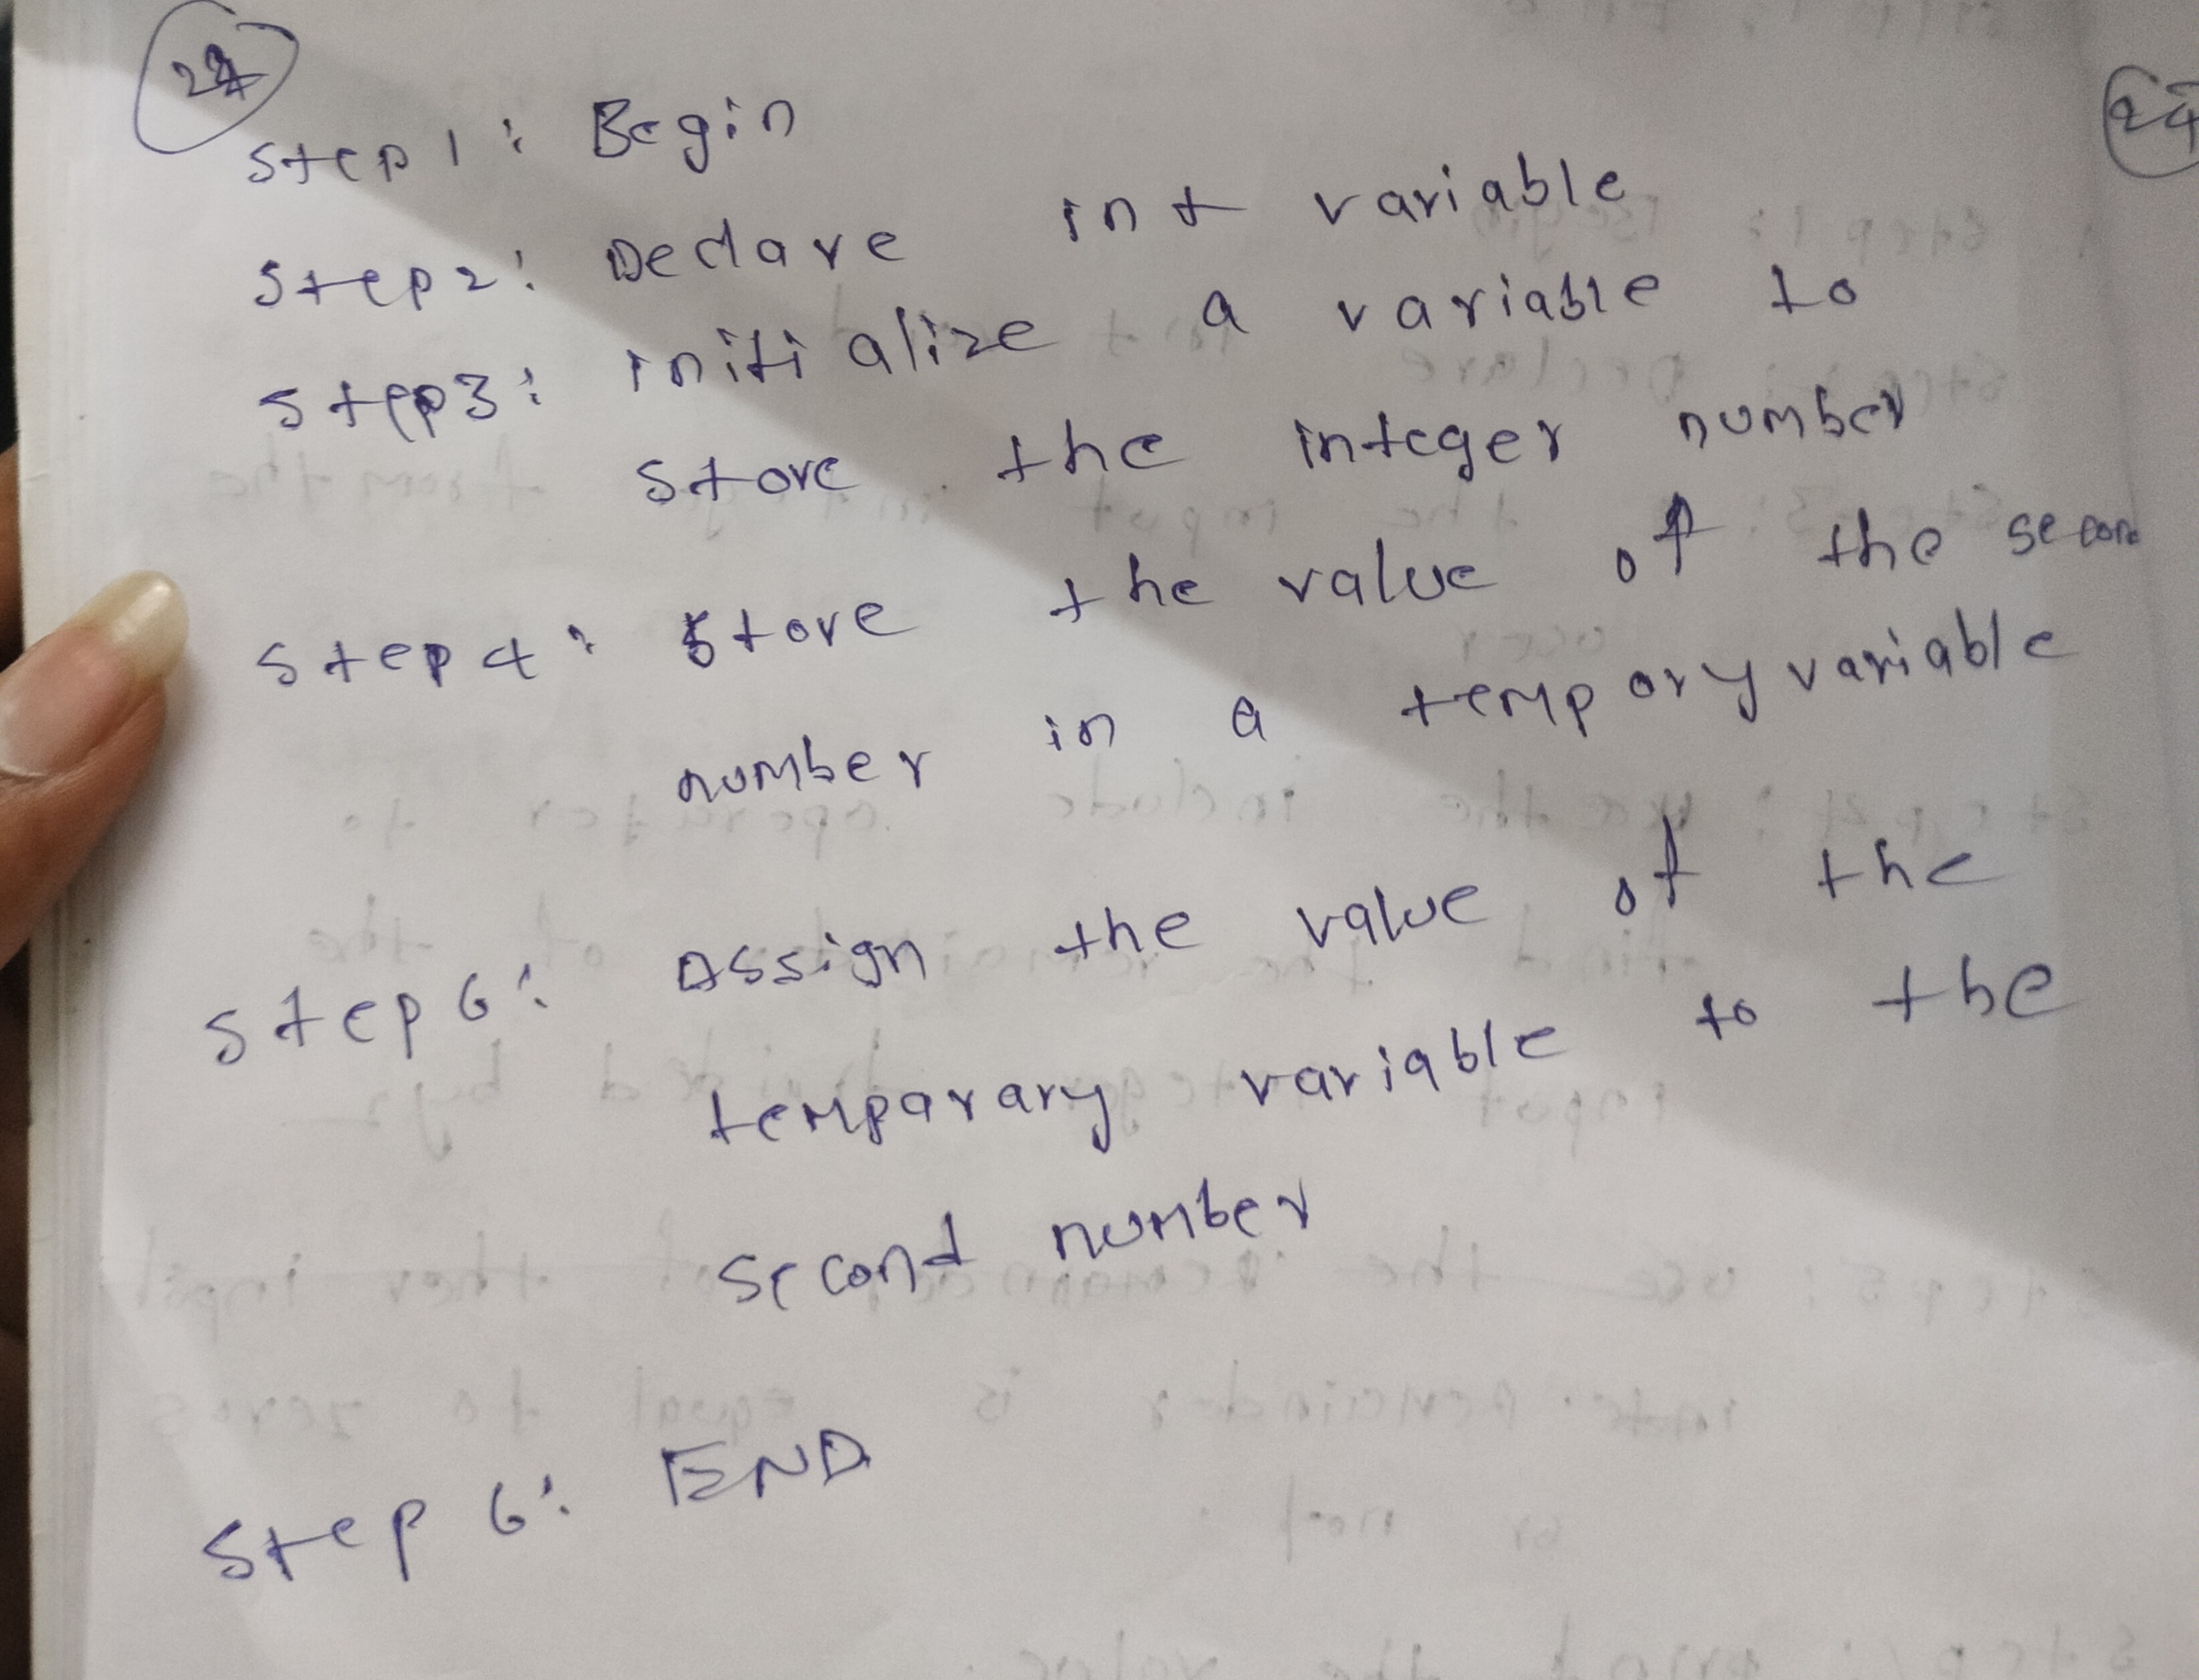 Step 1: Begin
Step 2: Declare int variable
Step 3: initialize a variable to
store the integer number
Step 4: Store the value of the secon
number in a temporary variable
Step 6: Assign the value of the
temparary variable to the
second number
Step 6: END